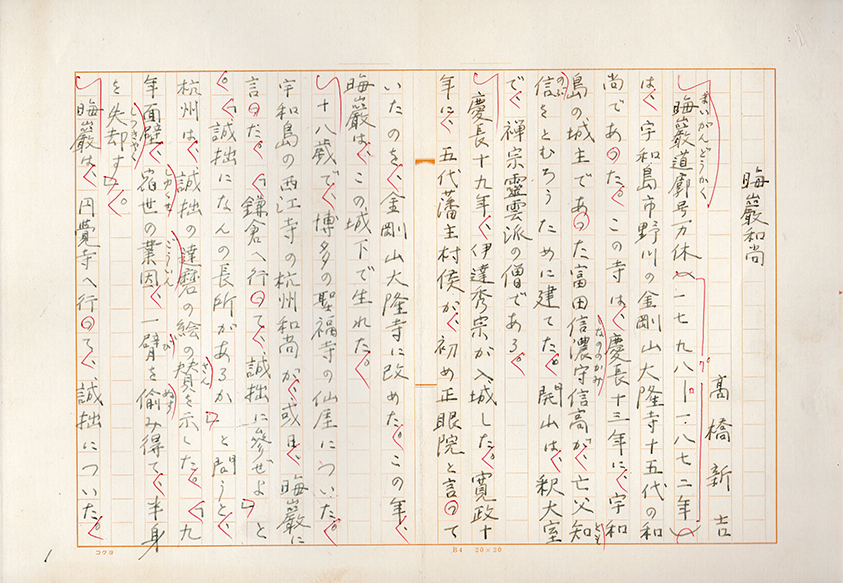 晦巖和尚
高橋新吉
晦巖道廓号万休(一七九八―一八七二年)
は、宇和島市野川の金剛山大隆寺十五代の和
尚であった。この寺は、慶長十三年に、宇和
島の城主であった富田信濃守信高が、亡父知
信をとむらうために建てた。開山は、釈大室
で、禅宗霊雲派の僧である。
慶長十九年、伊達秀宗が入城した。寛政十
年に、五代藩主村侯が、初め正眼院と言って
いたのを、金剛山大隆寺に改めた。この年、
晦巖は、この城下で生れた。
十八歳で、博多の聖福寺の仙崖についた。
宇和島の西江寺の杭州和尚が、或日、晦巖に
言った。「鎌倉へ行って、誠拙に参ぜよ」と
。「誠拙になんの長所があるか」と問うと、
杭州は、誠拙の達磨の絵の賛を示した。「九
年面壁、宿世の業因、一臂を偸み得て、半身
を失却す」。
晦巖は、円覚寺へ行って、誠拙についた。
まいがんどうかく
なののかみ
とも
のぶ
しゅくせ
ごういん
ぴ
ぬす
さん
しつきやく
コクヨ
B4 20×20